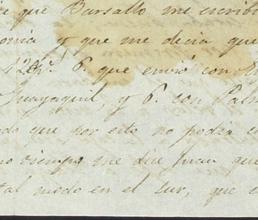 que Basallo me escribi
onia y que me decia que
128 p. que envió con
Guayaquil, y 6. con
do que por esto no podia
no siempre me dice Juan que
tal modo en el sur, que